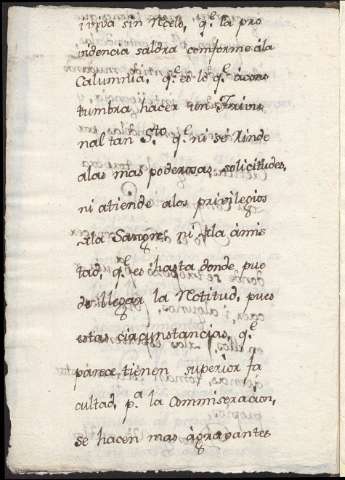 sin Rcelo, q.e la pro
videncia saldra comforme ála
Calumnia, q.e es lo q.e acos
tumbra hacer un Tribu
nal tan S.to q.e ni se Rinde
alas mas poderosas solicitudes,
ni atiende alos privilegios
dla Sangre, ni dla amis
tad, q.e es hasta donde pue
de llegar la Rctitud, pues
estas circunstancias, q.e
parece tienen superior fa
cultad p.a la Commiseracion,
se hacen mas agravantes